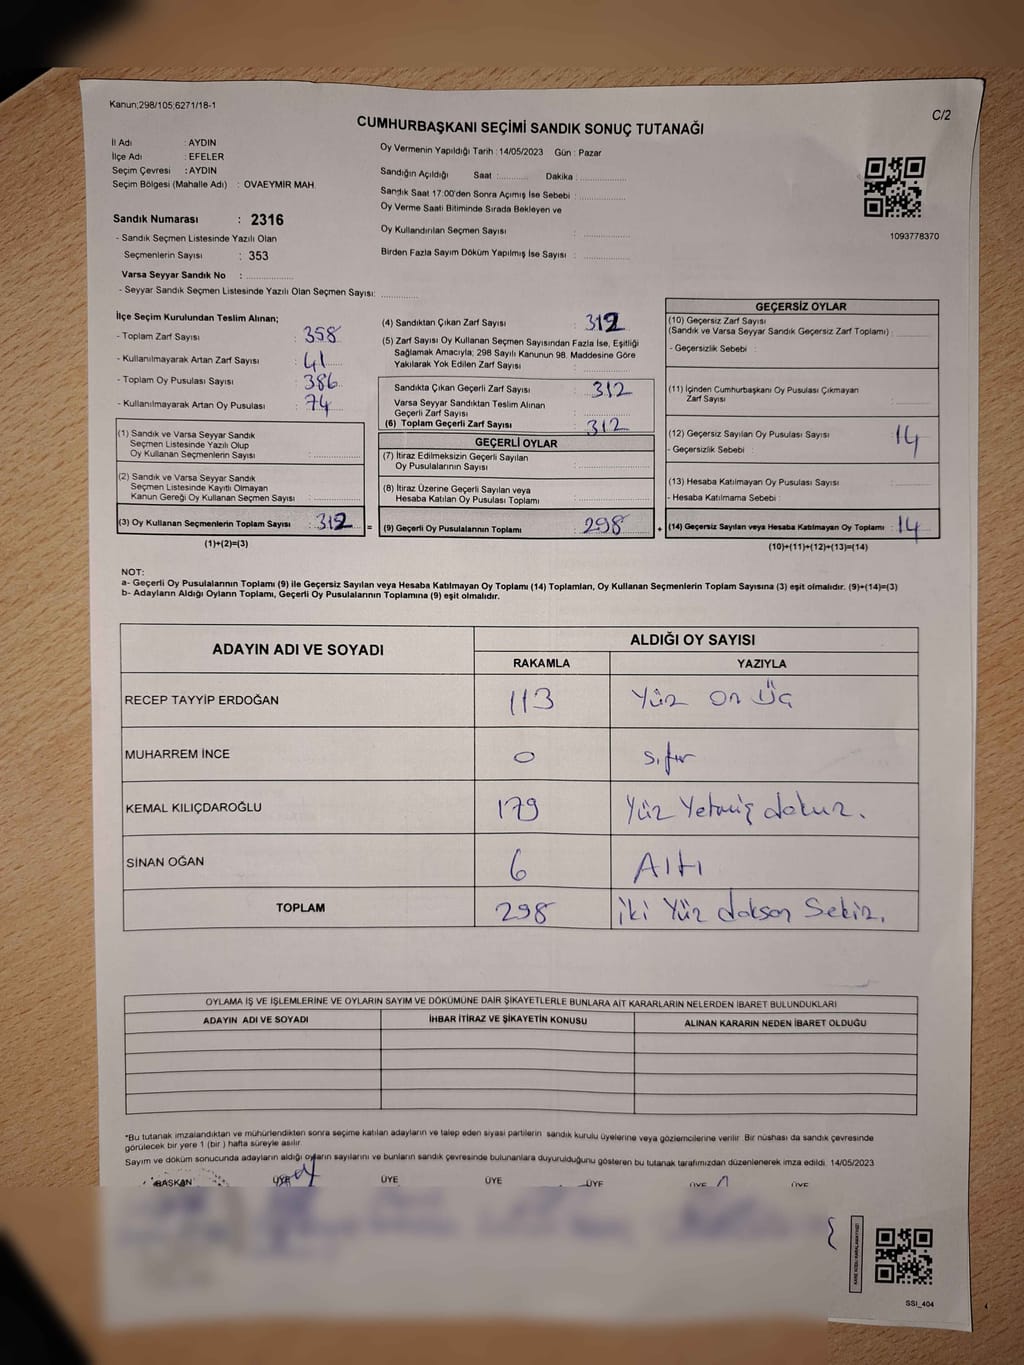 Kanun;298/105;6271/18-1
C/2
CUMHURBAŞKANI SEÇİMİ SANDIK SONUÇ TUTANAĞI
İl Adı : AYDIN
İlçe Adı : EFELER
Seçim Çevresi : AYDIN
Seçim Bölgesi (Mahalle Adı) : OVAEYMİR MAH.
Oy Vermenin Yapıldığı Tarih : 14/05/2023 Gün : Pazar
Sandığın Açıldığı Saat :.......... Dakika :..............
Sandık Saat 17:00'den Sonra Açımış İse Sebebi :..............
Oy Verme Saati Bitiminde Sırada Bekleyen ve
Oy Kullandırılan Seçmen Sayısı : ..............
Birden Fazla Sayım Döküm Yapılmış İse Sayısı : ..............
1093778370
Sandık Numarası : 2316
- Sandık Seçmen Listesinde Yazılı Olan
Seçmenlerin Sayısı : 353
Varsa Seyyar Sandık No : ..............
- Seyyar Sandık Seçmen Listesinde Yazılı Olan Seçmen Sayısı: ..............
İlçe Seçim Kurulundan Teslim Alınan;
- Toplam Zarf Sayısı : 358
- Kullanılmayarak Artan Zarf Sayısı : 41
- Toplam Oy Pusulası Sayısı : 386
- Kullanılmayarak Artan Oy Pusulası : 74
(1) Sandık ve Varsa Seyyar Sandık
Seçmen Listesinde Yazılı Olup
Oy Kullanan Seçmenlerin Sayısı : ..............
(2) Sandık ve Varsa Seyyar Sandık
Seçmen Listesinde Kayıtlı Olmayan
Kanun Gereği Oy Kullanan Seçmen Sayısı : ..............
(3) Oy Kullanan Seçmenlerin Toplam Sayısı : 312 =
(1)+(2)=(3)
(4) Sandıktan Çıkan Zarf Sayısı : 312
(5) Zarf Sayısı Oy Kullanan Seçmen Sayısından Fazla İse, Eşitliği
Sağlamak Amacıyla; 298 Sayılı Kanunun 98. Maddesine Göre
Yakılarak Yok Edilen Zarf Sayısı : ..............
Sandıkta Çıkan Geçerli Zarf Sayısı : 312
Varsa Seyyar Sandıktan Teslim Alınan
Geçerli Zarf Sayısı : ..............
(6) Toplam Geçerli Zarf Sayısı : 312
GEÇERLİ OYLAR
(7) İtiraz Edilmeksizin Geçerli Sayılan
Oy Pusulalarının Sayısı : ..............
(8) İtiraz Üzerine Geçerli Sayılan veya
Hesaba Katılan Oy Pusulası Toplamı : ..............
(9) Geçerli Oy Pusulalarının Toplamı : 298 +
GEÇERSİZ OYLAR
(10) Geçersiz Zarf Sayısı
(Sandık ve Varsa Seyyar Sandık Geçersiz Zarf Toplamı) :
- Geçersizlik Sebebi :
(11) İçinden Cumhurbaşkanı Oy Pusulası Çıkmayan
Zarf Sayısı :
(12) Geçersiz Sayılan Oy Pusulası Sayısı : 14
- Geçersizlik Sebebi :
(13) Hesaba Katılmayan Oy Pusulası Sayısı :
- Hesaba Katılmama Sebebi :
(14) Geçersiz Sayılan veya Hesaba Katılmayan Oy Toplamı : 14
(10)+(11)+(12)+(13)=(14)
NOT:
a- Geçerli Oy Pusulalarının Toplamı (9) ile Geçersiz Sayılan veya Hesaba Katılmayan Oy Toplamı (14) Toplamları, Oy Kullanan Seçmenlerin Toplam Sayısına (3) eşit olmalıdır. (9)+(14)=(3)
b- Adayların Aldığı Oyların Toplamı, Geçerli Oy Pusulalarının Toplamına (9) eşit olmalıdır.
ADAYIN ADI VE SOYADI ALDIĞI OY SAYISI
RAKAMLA YAZIYLA
RECEP TAYYİP ERDOĞAN 113 Yüz on Üç
MUHARREM İNCE 0 sıfır
KEMAL KILIÇDAROĞLU 179 Yüz Yetmiş dokuz.
SİNAN OĞAN 6 Altı
TOPLAM 298 iki Yüz doksan Sekiz.
OYLAMA İŞ VE İŞLEMLERİNE VE OYLARIN SAYIM VE DÖKÜMÜNE DAİR ŞİKAYETLERLE BUNLARA AİT KARARLARIN NELERDEN İBARET BULUNDUKLARI
ADAYIN ADI VE SOYADI İHBAR İTİRAZ VE ŞİKAYETİN KONUSU ALINAN KARARIN NEDEN İBARET OLDUĞU
*Bu tutanak imzalandıktan ve mühürlendikten sonra seçime katılan adayların ve talep eden siyasi partilerin sandık kurulu üyelerine veya gözlemcilerine verilir. Bir nüshası da sandık çevresinde
görülecek bir yere 1 (bir ) hafta süreyle asılır.
Sayım ve döküm sonucunda adayların aldığı oyların sayılarını ve bunların sandık çevresinde bulunanlara duyurulduğunu gösteren bu tutanak tarafımızdan düzenlenerek imza edildi. 14/05/2023
BAŞKAN ÜYE ÜYE ÜYE ÜYE ÜYE ÜYE
SSI_404